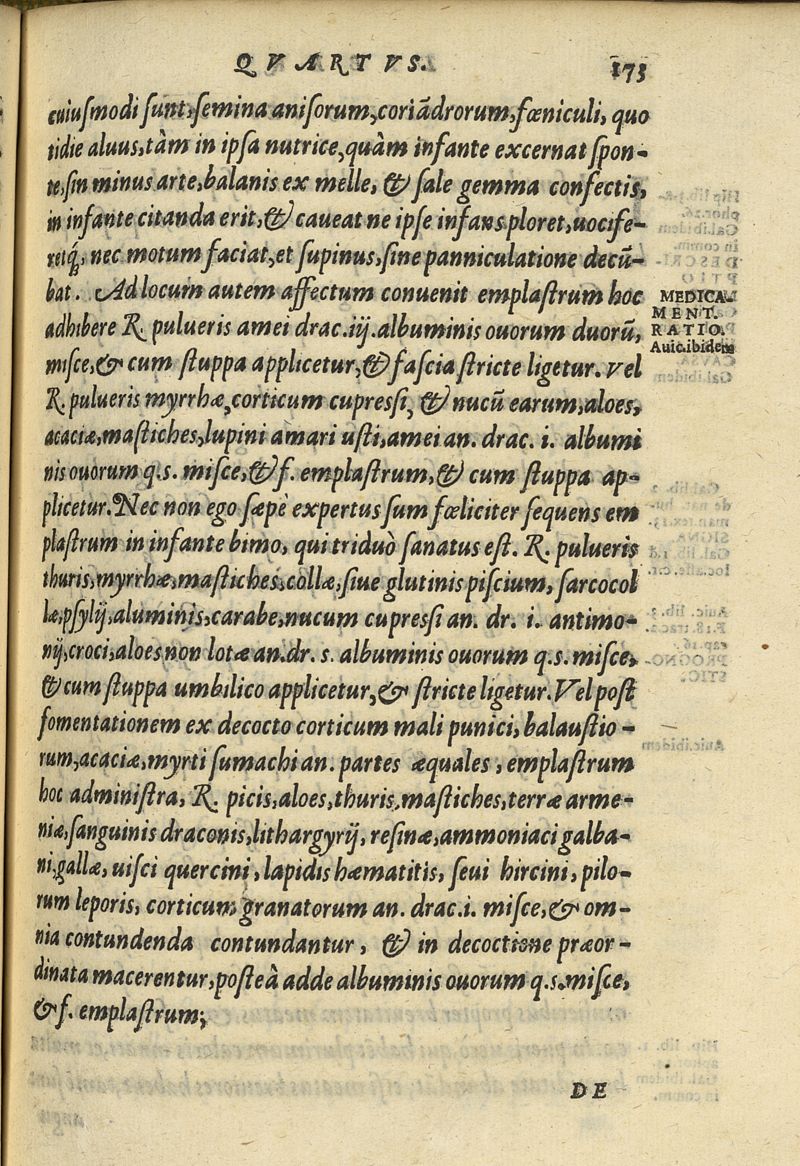 QVARTVS. 173
cuiuſmodi ſunt, ſemina aniſorum, coriãdrorum, fœniculi, quo
tidie aluus, tàm in ipſa nutrice, quàm infante excernat ſpon-
te, ſin minus arte, balanis ex melle, & ſale gemma confectis,
in infante citanda erit, & caueat ne ipſe infans ploret, uocife-
retq́;, nec motum faciat, et ſupinus, ſine panniculatione decũ-
bat. Ad locum autem affectum conuenit emplaſtrum hoc
adhibere ℞. pulueris amei drac. iij. albuminis ouorum duorũ,
miſce, & cum ſtuppa applicetur, & faſcia ſtricte ligetur. Vel
℞. pulueris myrrhæ, corticum cupreſſi, & nucũ earum, aloes,
acaciæ, maſtiches, lupini amari uſti, amei an. drac. i. albumi
nis ouorum q.s. miſce, & f. emplaſtrum, & cum ſtuppa ap-
plicetur. Nec non ego ſæpè expertus ſum fœliciter ſequens em
plaſtrum in infante bimo, qui triduò ſanatus eſt. ℞. pulueris
thuris, myrrhæ, maſtiches, collæ, ſiue glutinis piſcium, ſarcocol
læ, pſylij, aluminis, carabe, nucum cupreſſi an. dr. i. antimo-
nij, croci, aloes non lotæ an. dr. s. albuminis ouorum q.s. miſce,
& cum ſtuppa umbilico applicetur, & ſtricte ligetur. Vel poſt
fomentationem ex decocto corticum mali punici, balauſtio-
rum, acaciæ, myrti ſumachi an. partes æquales, emplaſtrum
hoc adminiſtra, ℞. picis, aloes, thuris, maſtiches, terræ arme-
niæ, ſanguinis draconis, lithargyrij, reſinæ, ammoniaci galba-
ni, gallæ, uiſci quercini, lapidis hæmatitis, ſeui hircini, pilo-
rum leporis, corticum granatorum an. drac. i. miſce, & om-
nia contundenda contundantur, & in decoctione præor-
dinata macerentur, poſteà adde albuminis ouorum q.s. miſce,
& f. emplaſtrum;
DE
MEDICA-
MENT.
RATIO.
Auic. ibidem